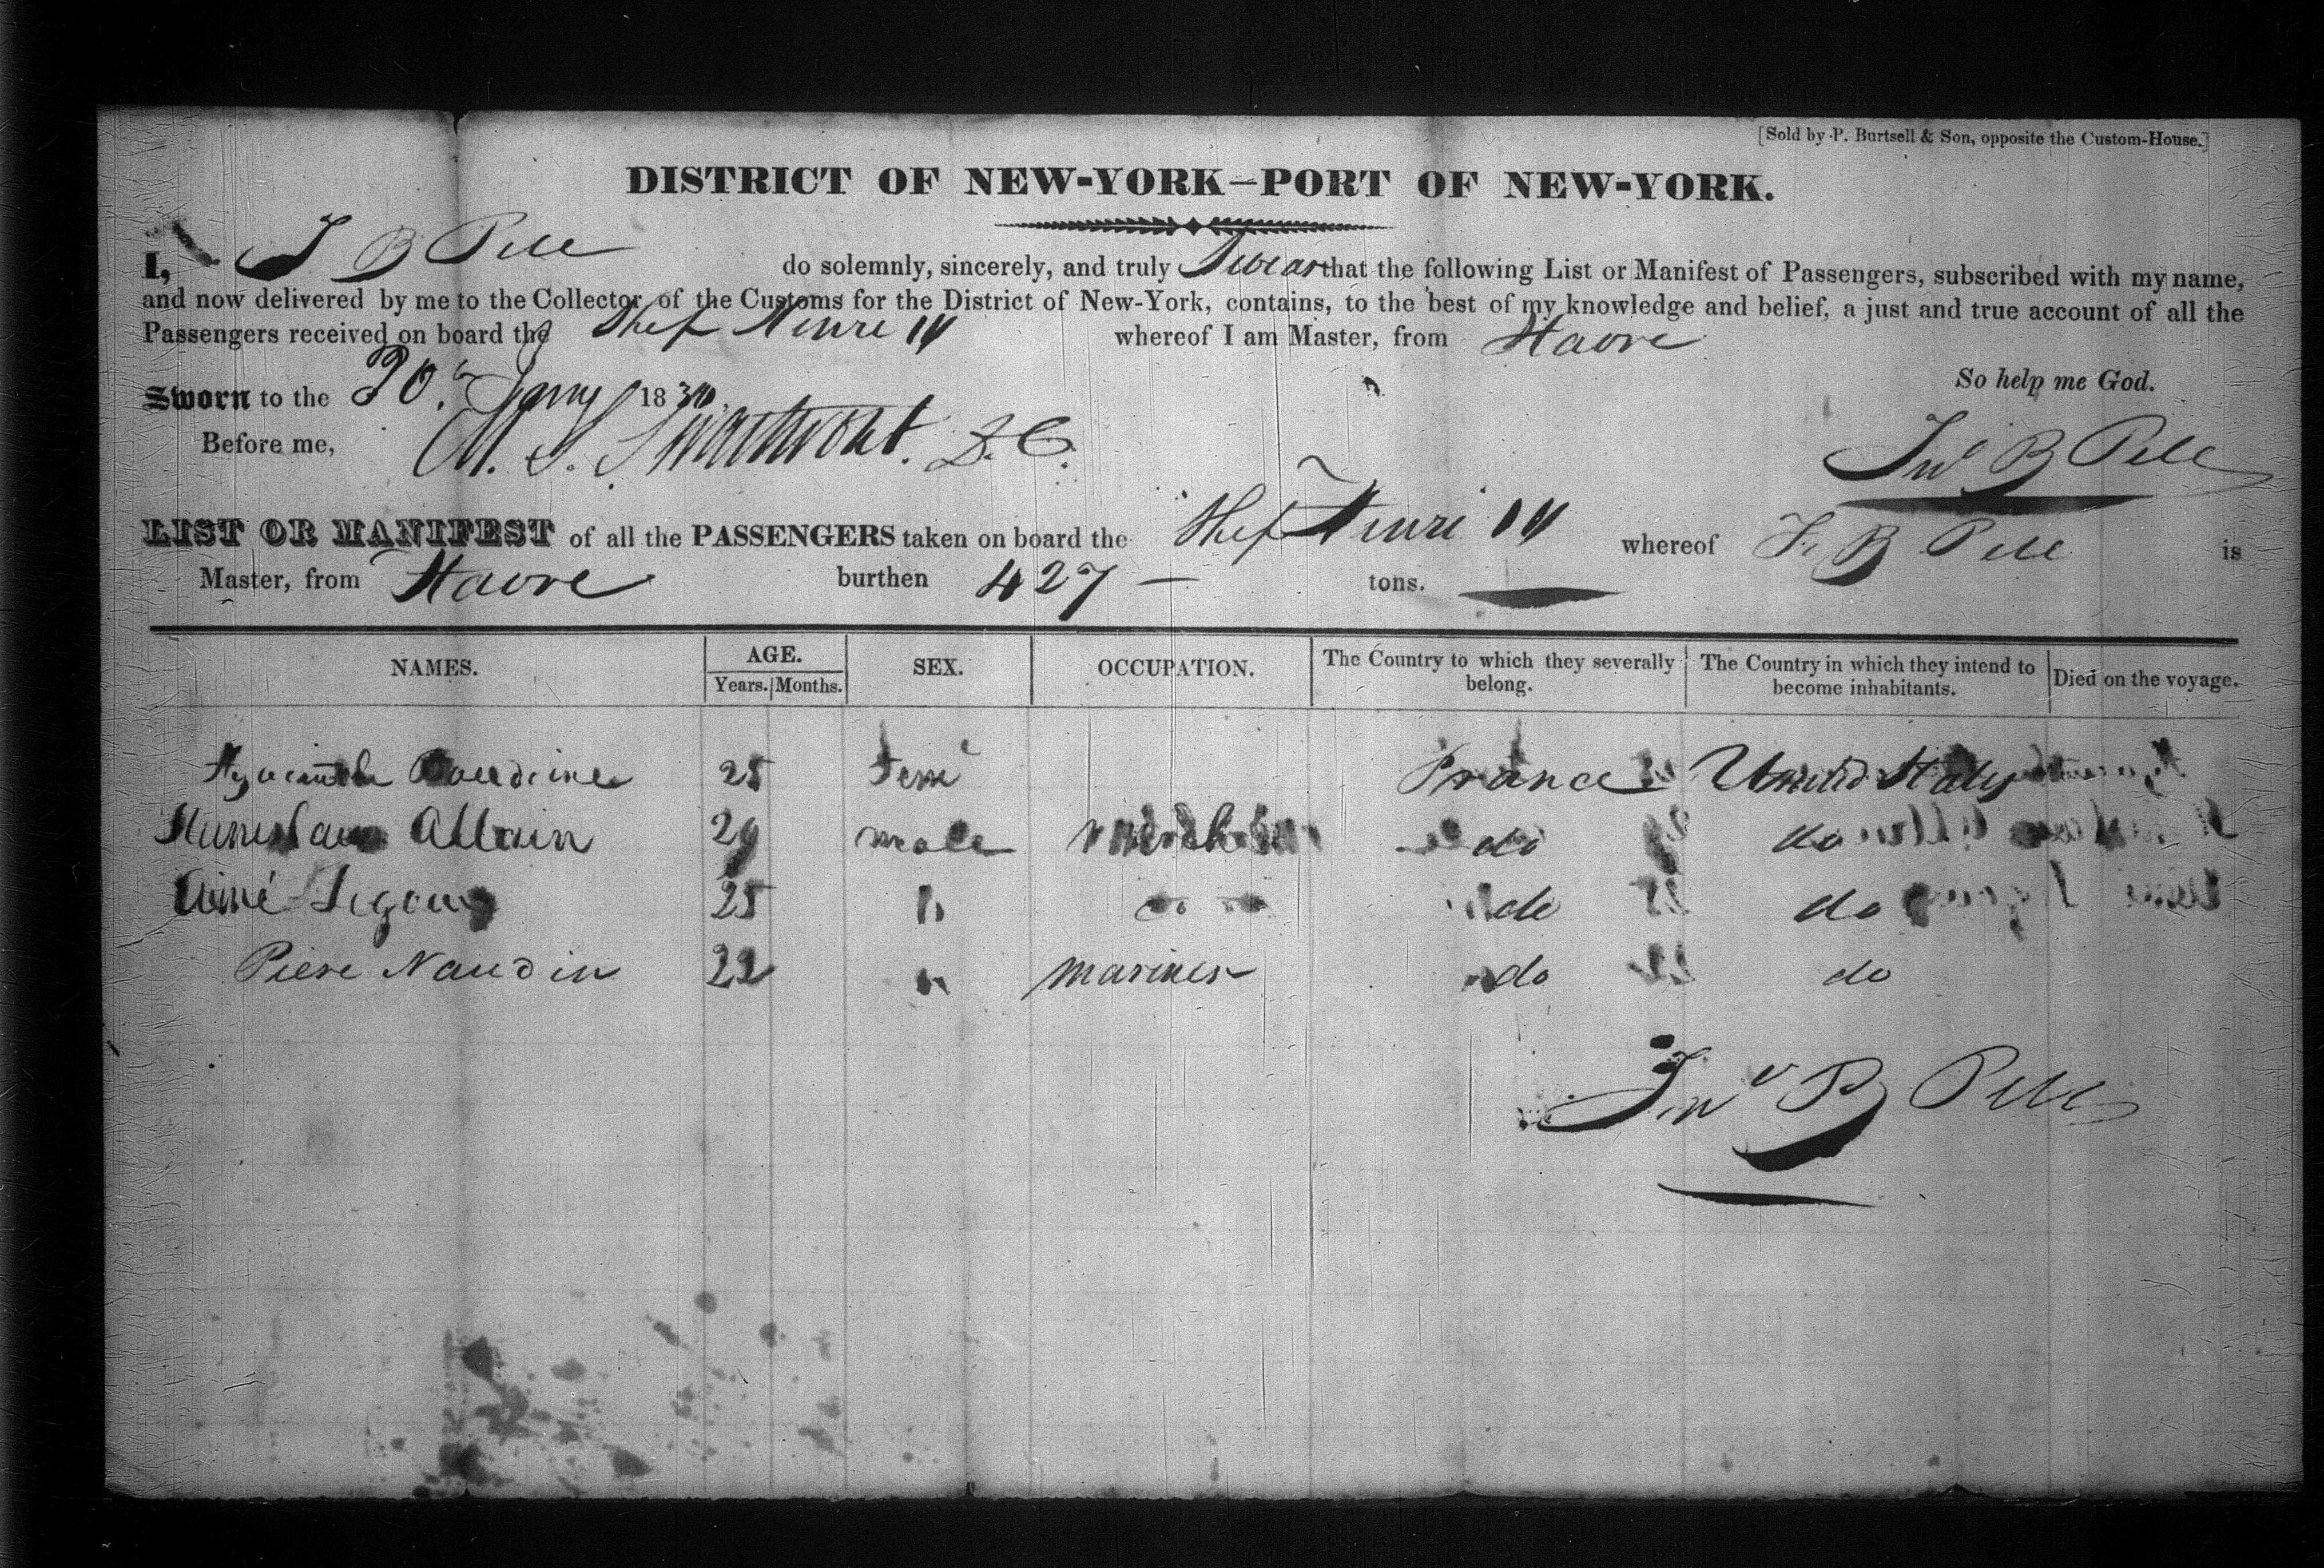 [Sold by P. Burtsell & Son, opposite the Custom-House.]
DISTRICT OF NEW-YORK—PORT OF NEW-YORK.
I, J B Pell do solemnly, sincerely, and truly Swear that the following List or Manifest of Passengers, subscribed with my name,
and now delivered by me to the Collector of the Customs for the District of New-York, contains, to the best of my knowledge and belief, a just and true account of all the
Passengers received on board the Ship Henri IV whereof I am Master, from Havre
So help me God.
Sworn to the 30th Jany 18
Before me, M. S. Swartwout. D. C. Jno B Pell
LIST OR MANIFEST of all the PASSENGERS taken on board the Ship Henri IV whereof J. B Pell is
Master, from Havre burthen 427 — tons.
NAMES. AGE. SEX. OCCUPATION. The Country to which they severally belong. The Country in which they intend to become inhabitants. Died on the voyage.
Years. Months.
Hyacinthe 25 Fem France United States
Stanislaus Allain 29 male do do
Aimé 25 " do do do
Piere Naudin 22 " mariner do do
Jno B Pell